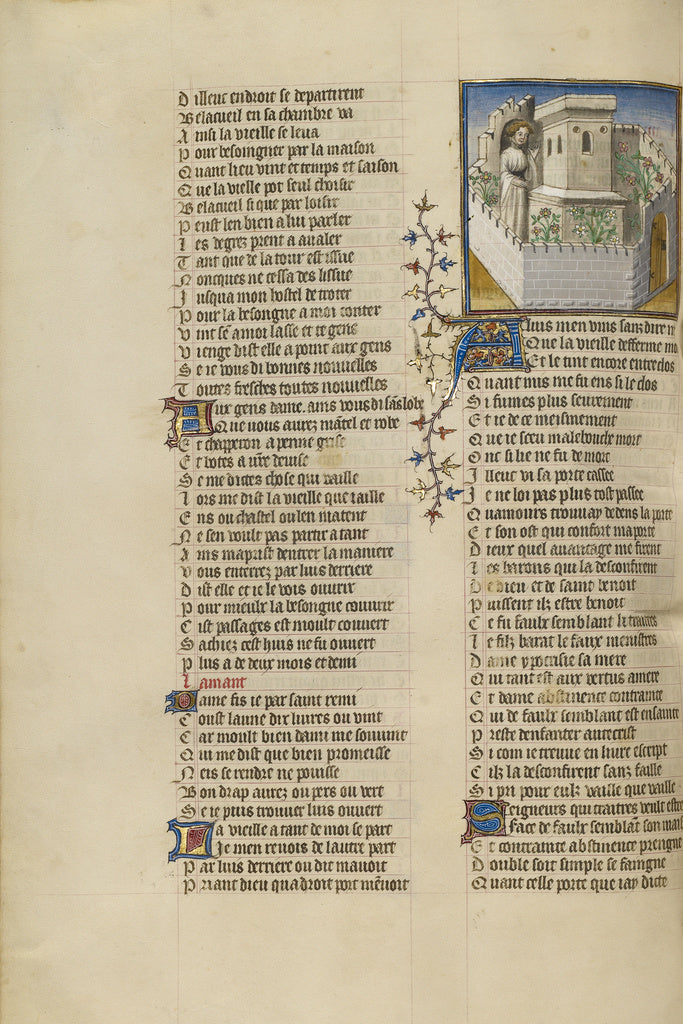 D illeuc endroit se departirent
B elacueil en sa chambre va
A insi la vieille se leua
P our besoingner par la maison
Q uant lieu vint et temps et saison
Q ue la vielle pot seul choisir
B elacueil si que par loisir
P eust len bien a lui parler
L es degrez prent a aualer
T ant que de la tour est issue
N oncques ne cessa des lissue
J usqua mon hostel de troter
P our la besongne a moy conter
V int sen a moi lasse et tegens
V ienge dist elle a point aux gens
S e ie vous di bonnes nouuelles
T outes fresches toutes nouuelles
Aux gens dame. ains vous di sans lobe
Que vous aurez mantel et robe
E t chapperon a penne grise
E t botes a vre deuise
S e me dictes chose qui vaille
L ors me dist la vieille que iaille
E ns ou chastel ou len matent
N e sen voult pas partir a tant
A ins maprist dentrer la maniere
V ous enterrez par luis derriere
D ist elle et ie le vois ouurir
P our mieulx la besongne couurir
C ist passages est moult couuert
S achiez cest huis ne fu ouuert
P lus a de deux mois et demi
Lamant
Dame fis ie par saint remi
C oust laune dix liures ou vint
C ar moult bien dami me souuint
Q ui me dist que bien promeisse
N eis se rendre ne pouisse
B on drap aurez ou pers ou vert
S e ie puis trouuer luis ouuert
La vieille a tant de moi se part
Je men reuois de lautre part
P ar luis derriere ou dit mauoit
P riant dieu qua droit port menuoit
A luis men vins sanz dire
Que la vieille defferme
Et le tint encore entreclos
Q uant mis me fu ens si le clos
S i fumes plus seurement
E t ie de ce meismement
Q ue ie sceu malebouche mort
O nc si lie ne fu de mort
J lleuc vi sa porte cassee
J e ne loi pas plus tost passee
Q uamours trouuay dedens la porte
E t son ost qui confort maporte
D ieux quel auantage me firent
L es barons qui la desconfirent
D e dieu et de saint benoit
P uissent ilz estre benoit
C e fu faulx semblant li traitres
L e filz barat le faux menistres
D ame ypocrisie sa mere
Q ui tant est aux vertus amere
E t dame abstinence contrainte
Q ui de faulx semblant est ensainte
P reste denfanter antecrist
S i com ie treuue en liure escript
C ilz la desconfirent sanz faille
S i pri pour eulz vaille que vaille
Seigneurs qui traitres veult estre
Face de faulx semblant son
E t contrainte abstinence prengne
D ouble soit simple se faingne
Q uant celle porte que iay dicte